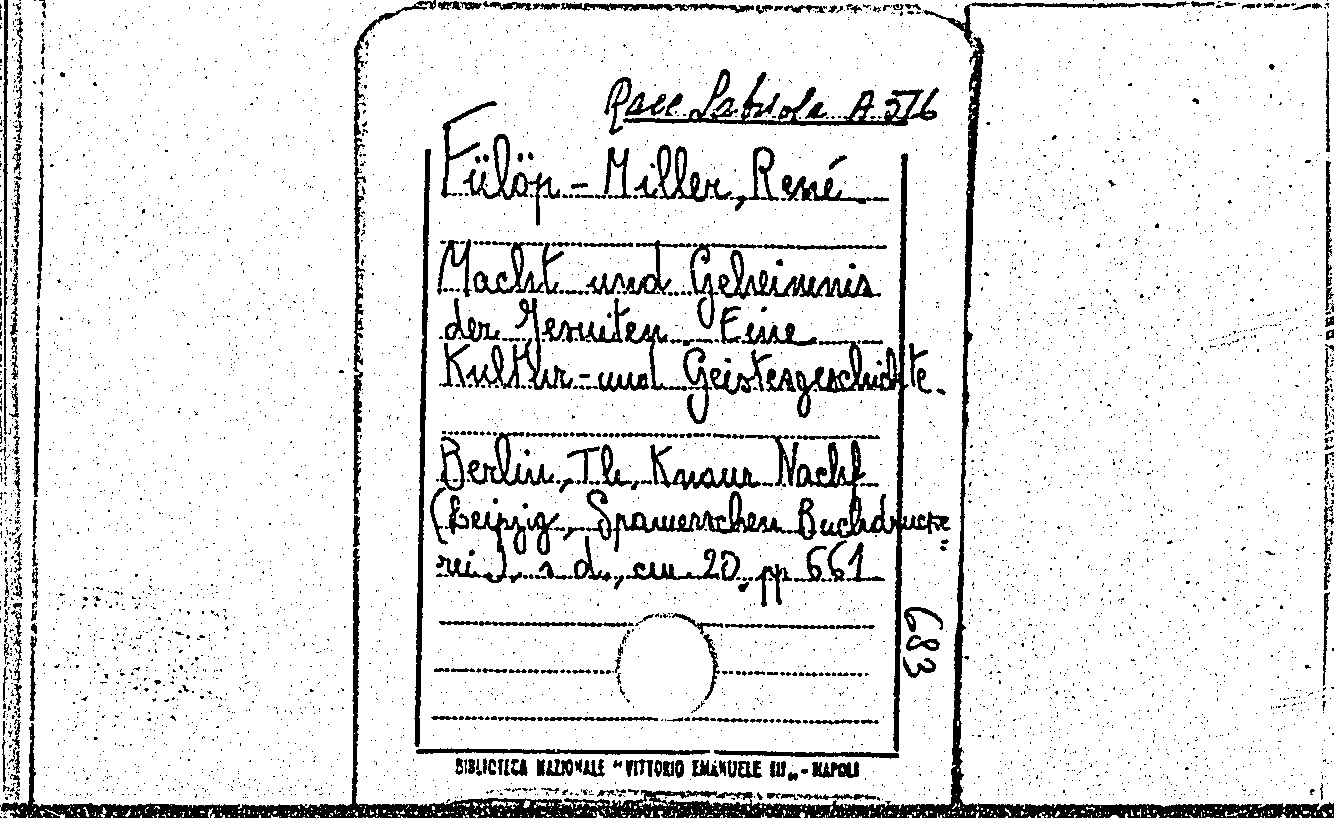 Racc. Labriola A 576
Fülöp-Miller, René
Macht und Geheimnis
der Jesuiten. Eine
Kultur-und Geistesgeschichte.
Berlin, Th. Knaur Nachf
(Leipzig, Spamerschen Buchdrucke=
rei), s. d., cm. 20, pp 661
683
BIBLIOTECA NAZIONALE "VITTORIO EMANUELE III„ - NAPOLI